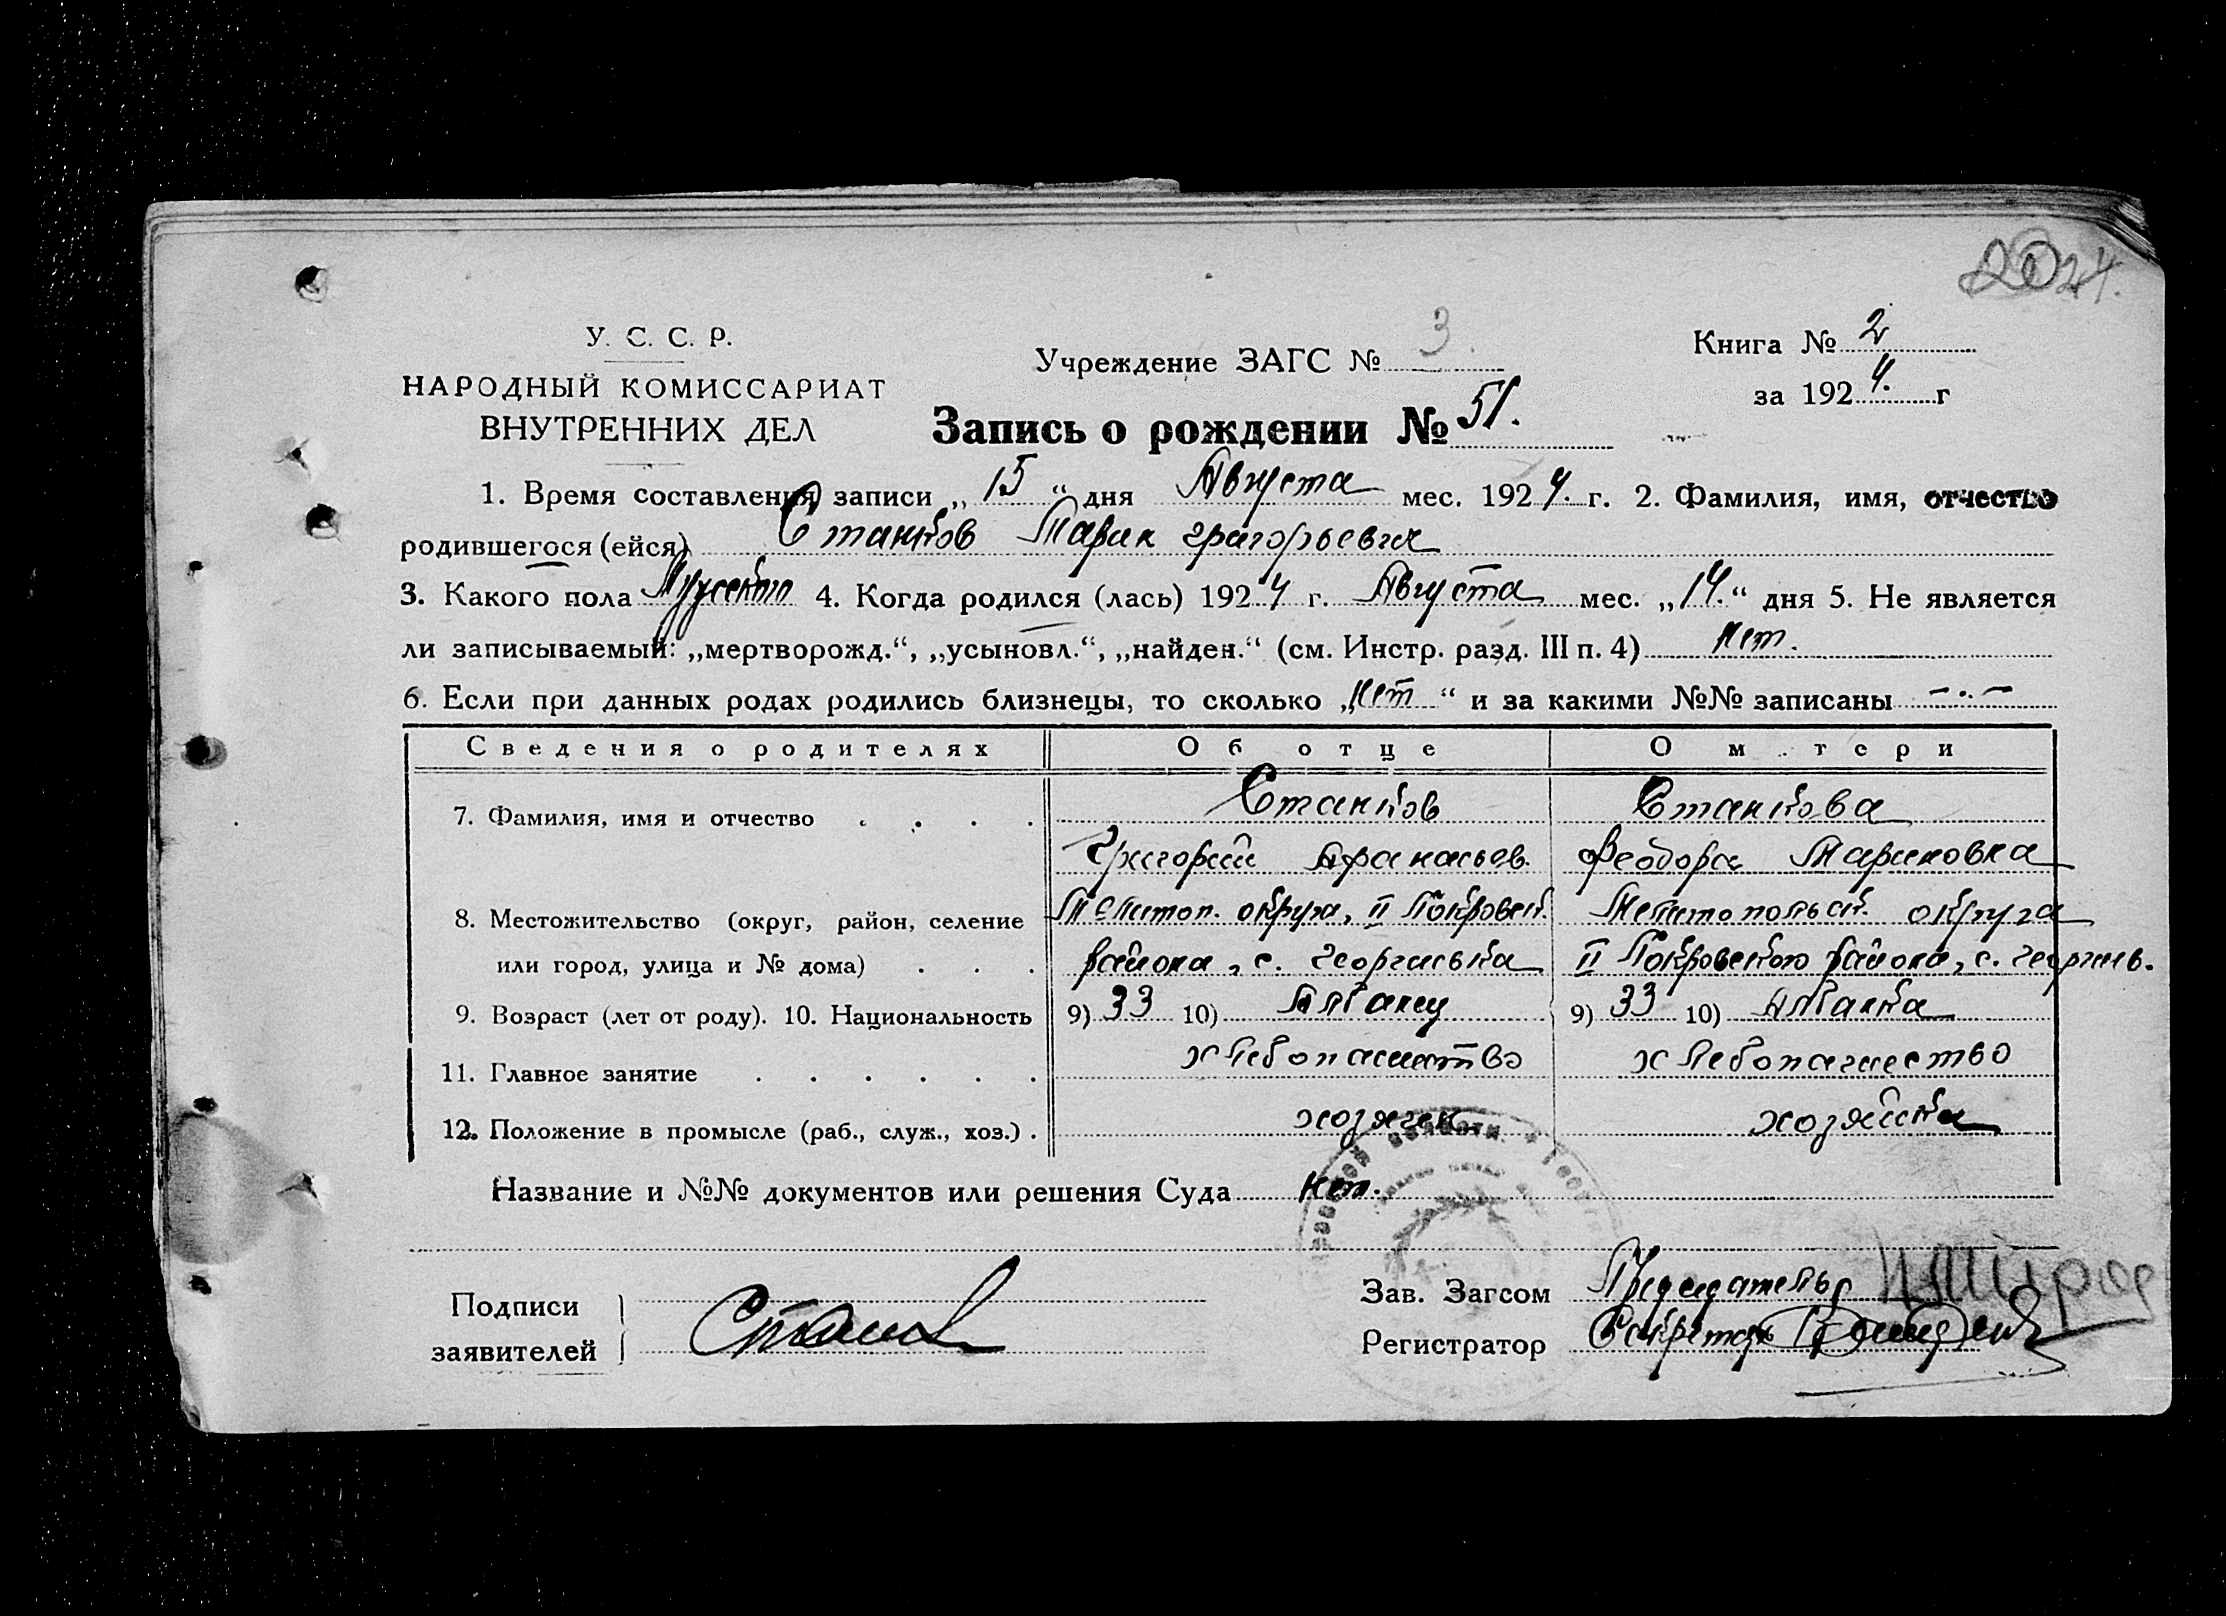 2024.
У. С. С. Р.
НАРОДНЫЙ КОМИССАРИАТ
ВНУТРЕННИХ ДЕЛ
Учреждение ЗАГС № 3
Книга № 2
за 1924. г
Запись о рождении № 51.
1. Время составления записи „15“ дня Августа мес. 1924. г. 2. Фамилия, имя, отчество
родившегося (ейся) Станков Марин григорьевич
3. Какого пола Мужского 4. Когда родился (лась) 1924 г. Августа мес. „14.“ дня 5. Не является
ли записываемый: „мертворожд.“, „усыновл.“, „найден.“ (см. Инстр. разд. III п. 4) нет.
6. Если при данных родах родились близнецы, то сколько „нет“ и за какими №№ записаны —.—
Сведения о родителях Об отце О м тери
7. Фамилия, имя и отчество . . . . Станков Станкова
Григорий Афанасьев. Феодора Мариновна
8. Местожительство (округ, район, селение Мелитоп. округа, II Покровск. Мелитопольск. округа
или город, улица и № дома) . . . района, с. Георгиевка II Покровского района, с. Георгиев.
9. Возраст (лет от роду). 10. Национальность 9) 33 10) Албанец 9) 33 10) Албанка
11. Главное занятие . . . . . . хлебопашество хлебопашество
12. Положение в промысле (раб., служ., хоз.) . хозяин хозяйка
Название и №№ документов или решения Суда нет.
Подписи
заявителей
Зав. Загсом Председатель
Регистратор Секретарь